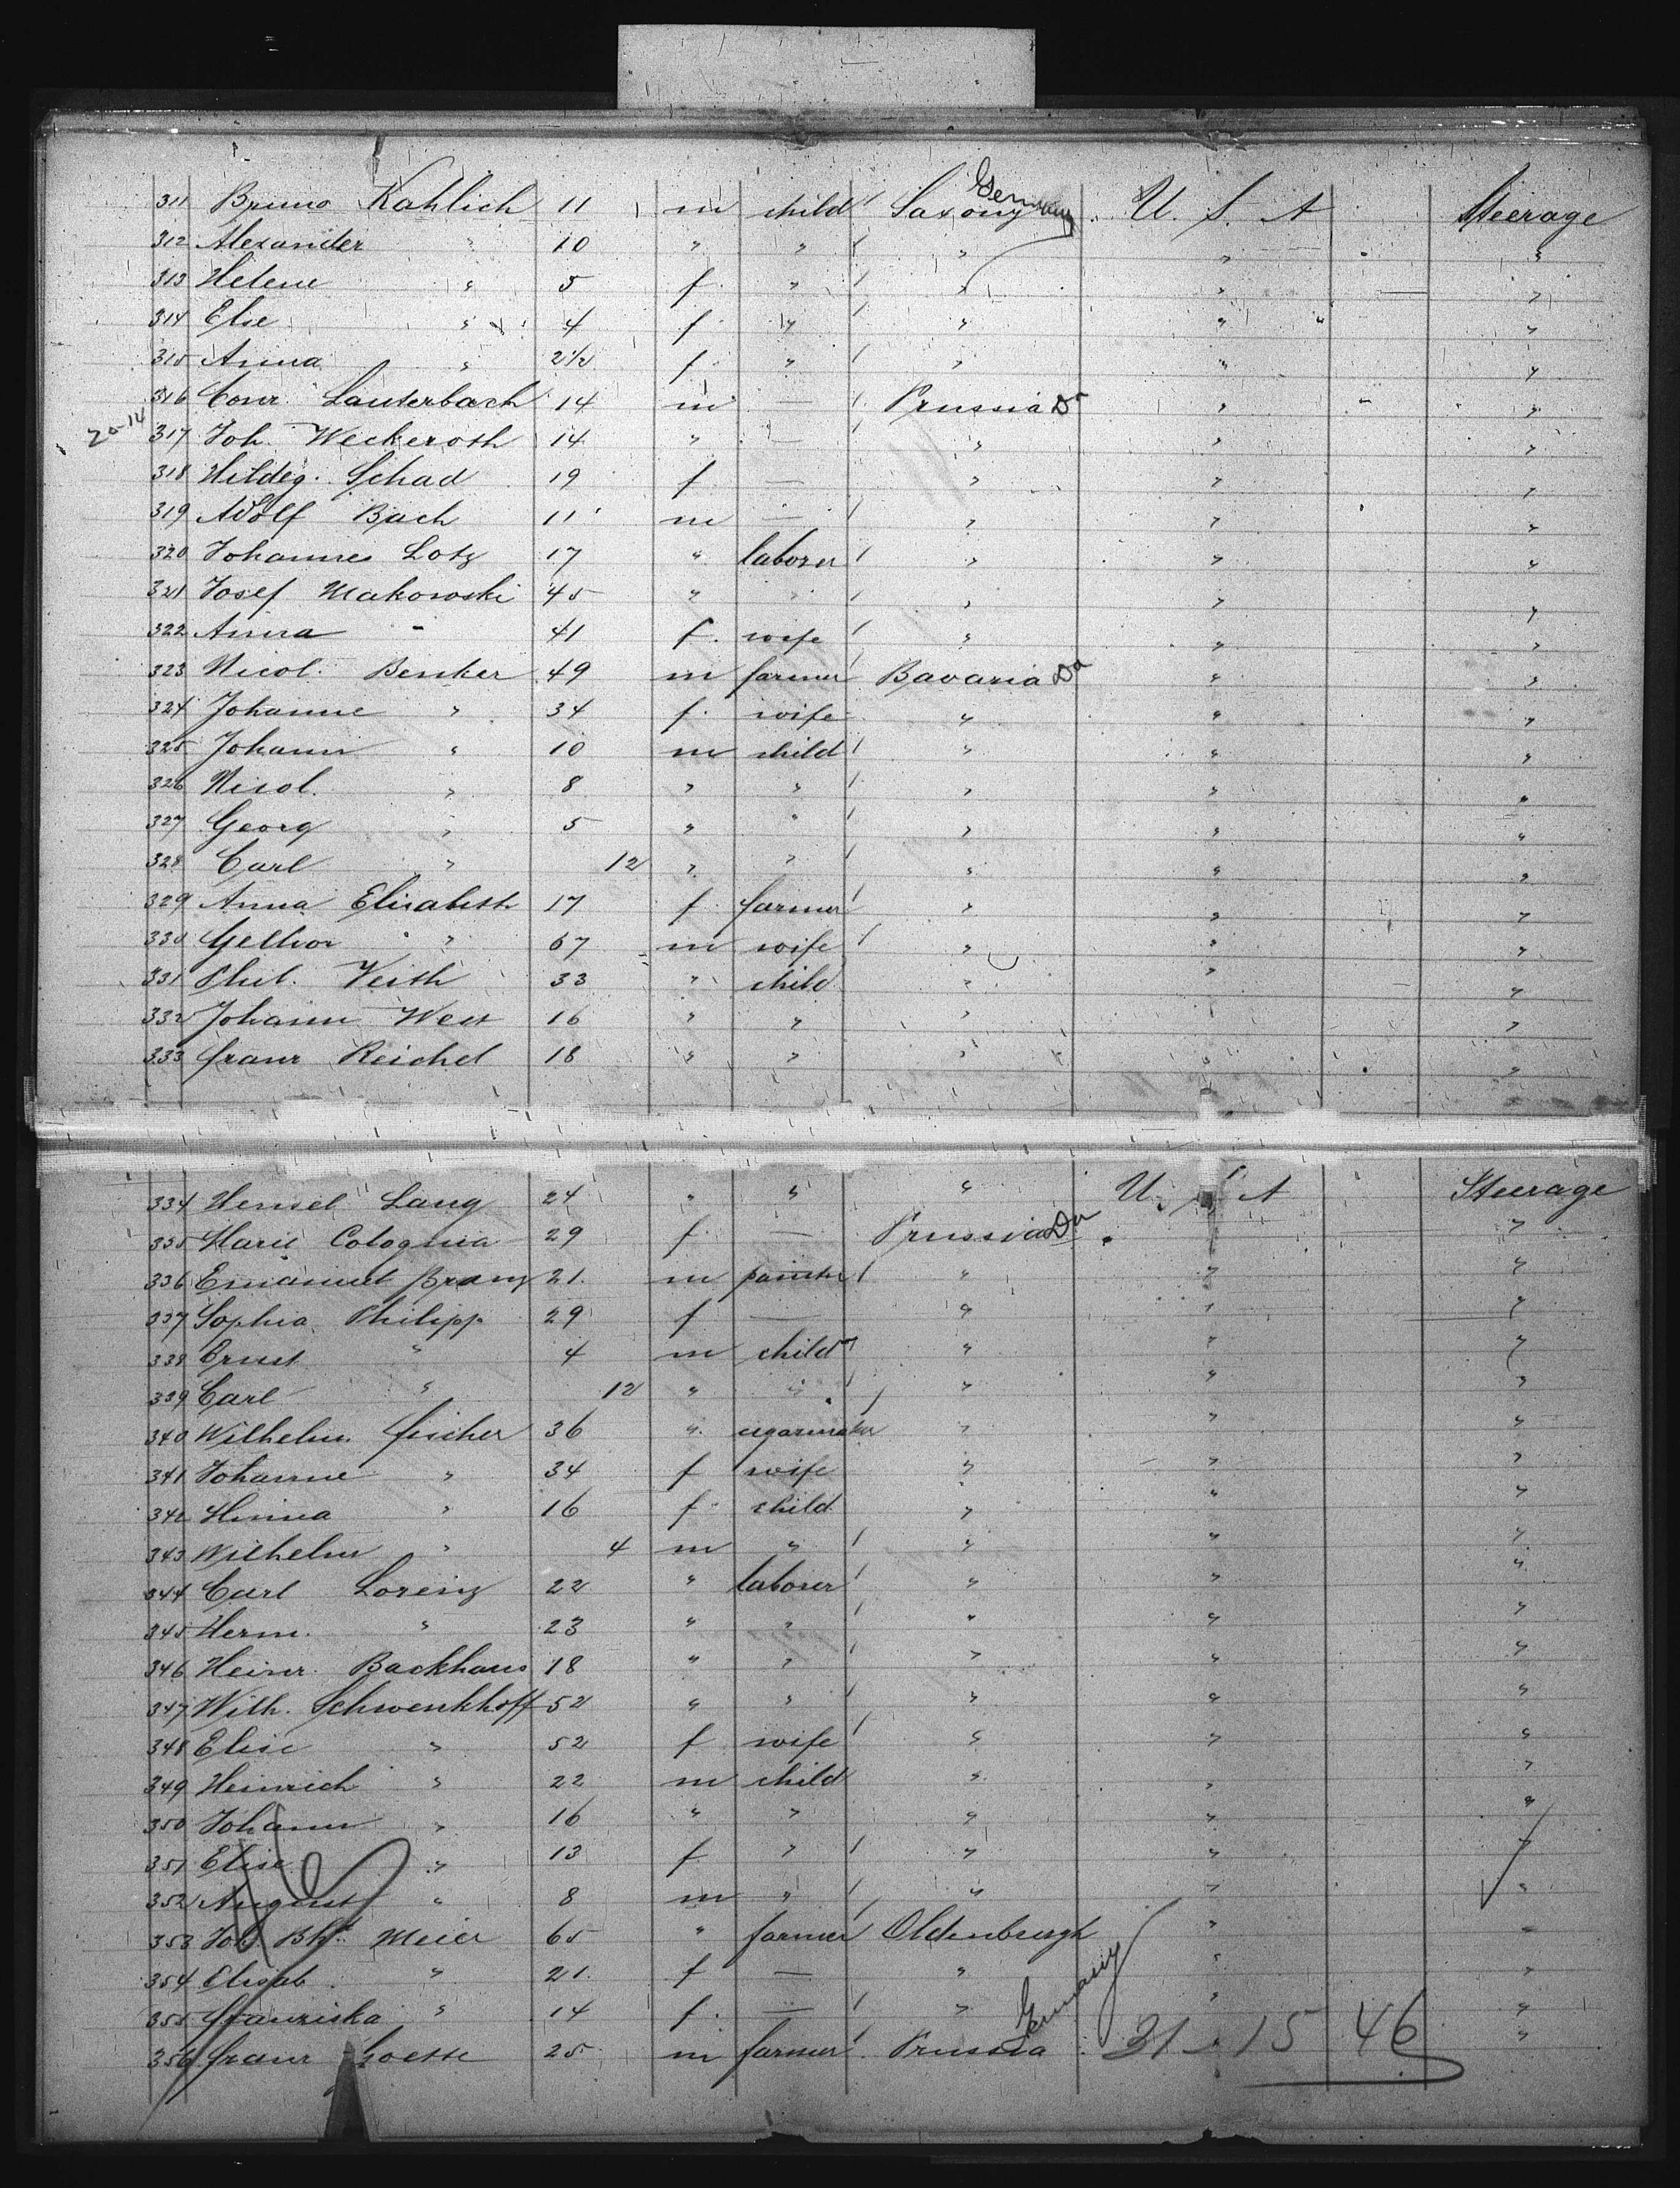 Germany
311 Bruno Kahlich 11 m child Saxony U. S. A Steerage
312 Alexander " 10 " " " " "
313 Helene " 5 f. " " " "
314 Else " 4 f " " " "
315 Anna " 2 1/2 f " " " "
316 Conr. Lauterbach 14 m — Prussia Do " "
20-14
317 Joh. Weckeroth 14 " — " " "
318 Hildeg. Schad 19 f — " " "
319 Adolf Bach 11 m — " " "
320 Johannes Lotz 17 " laborer " " "
321 Josef Makowski 45 " " " " "
322 Anna " 41 f. wife " " "
323 Nicol. Benker 49 m farmer Bavaria Do " "
324 Johanne " 34 f. wife " " "
325 Johann " 10 m child " " "
326 Nicol. " 8 " " " " "
327 Georg " 5 " " " " "
328 Carl " 12 " " " " "
329 Anna Elisabeth 17 f. farmer " " "
330 " 67 m wife " " "
331 Phil. Veith 33 " child " " "
332 Johann West 16 " " " " "
333 Franz Reichel 18 " " " " "
334 Hensel Lang 24 " " " U. S. A Steerage
335 Marie Cologna 29 f. — Prussia Do "
336 Emanuel 21. m painter " " "
337 Sophia Philipp 29 f — " " "
338 Ernst " 4 m child " " "
339 Carl " 12 " " " " "
340 Wilhelm Fischer 36 " cigarmaker " " "
341 Johanne " 34 f wife " " "
342 Minna " 16 f child " " "
343 Wilhelm " 4 m " " " "
344 Carl Lorenz 22 " laborer " " "
345 Herm. " 23 " " " " "
346 Heinr. Backhaus 18 " " " " "
347 Wilh. Schwenkhoff 52 " " " " "
348 Elise " 52 f wife " " "
349 Heinrich " 22 m child " " "
350 Johann " 16 " " " " "
351 Elise " 13 f " " " "
352 August " 8 m " " " "
353 Joh. Bh't. Meier 65 " farmer Oldenburgh " "
354 Elisab. " 21. f — " " "
355 Franziska " 14 f. — " " "
Germany
356 Franz Goette 25 m farmer Prussia 31 - 15 46 "